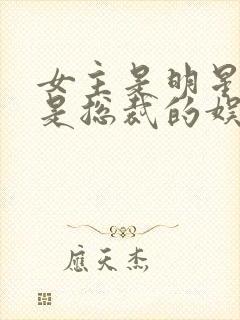 女主是明星
是总裁的娱
应天杰